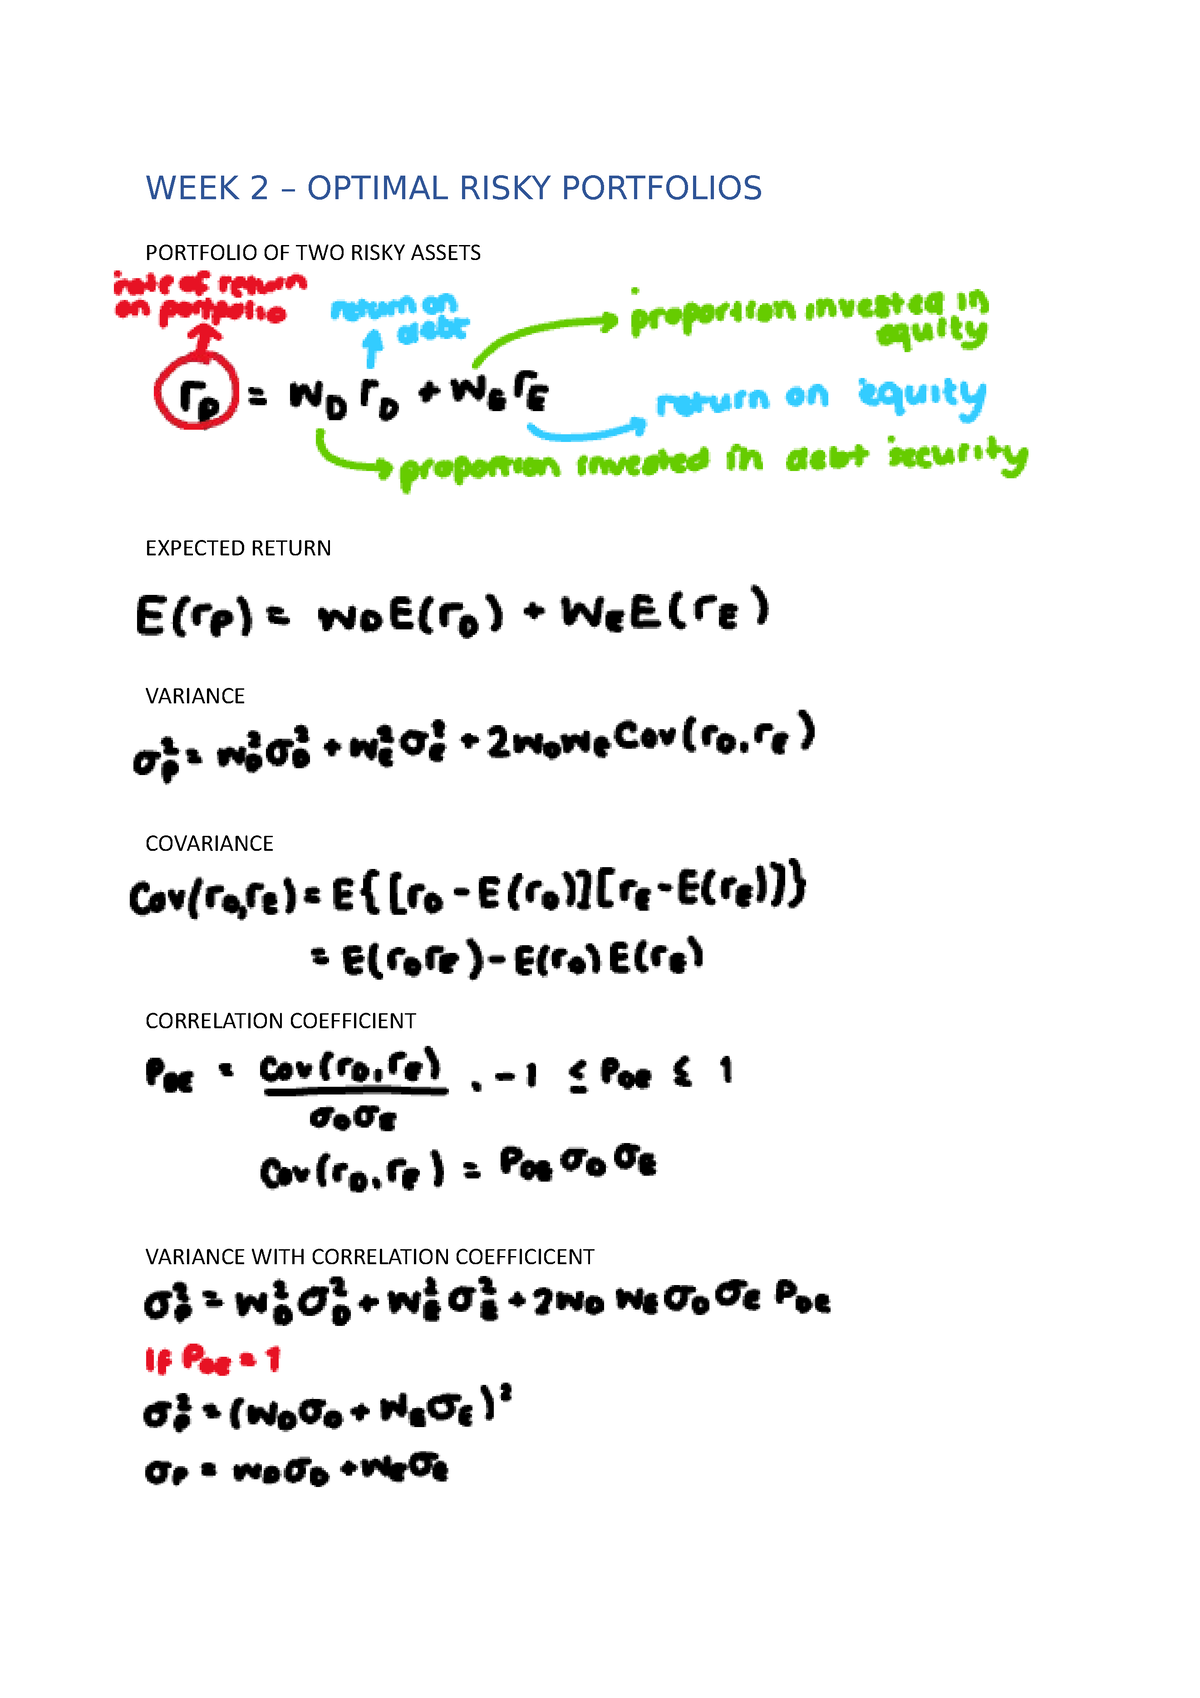 WEEK 2 – OPTIMAL RISKY PORTFOLIOS
PORTFOLIO OF TWO RISKY ASSETS
rate of return
on portfolio
return on
debt
proportion invested in
equity
r_P = w_D r_D + w_E r_E
return on equity
proportion invested in debt security
EXPECTED RETURN
E(r_P) = w_D E(r_D) + w_E E(r_E)
VARIANCE
σ_P² = w_D² σ_D² + w_E² σ_E² + 2w_D w_E Cov(r_D, r_E)
COVARIANCE
Cov(r_D, r_E) = E{[r_D - E(r_D)][r_E - E(r_E)]}
= E(r_D r_E) - E(r_D) E(r_E)
CORRELATION COEFFICIENT
ρ_DE = Cov(r_D, r_E) / σ_D σ_E , -1 ≤ ρ_DE ≤ 1
Cov(r_D, r_E) = ρ_DE σ_D σ_E
VARIANCE WITH CORRELATION COEFFICICENT
σ_P² = w_D² σ_D² + w_E² σ_E² + 2w_D w_E σ_D σ_E ρ_DE
If ρ_DE = 1
σ_P² = (w_D σ_D + w_E σ_E)²
σ_P = w_D σ_D + w_E σ_E